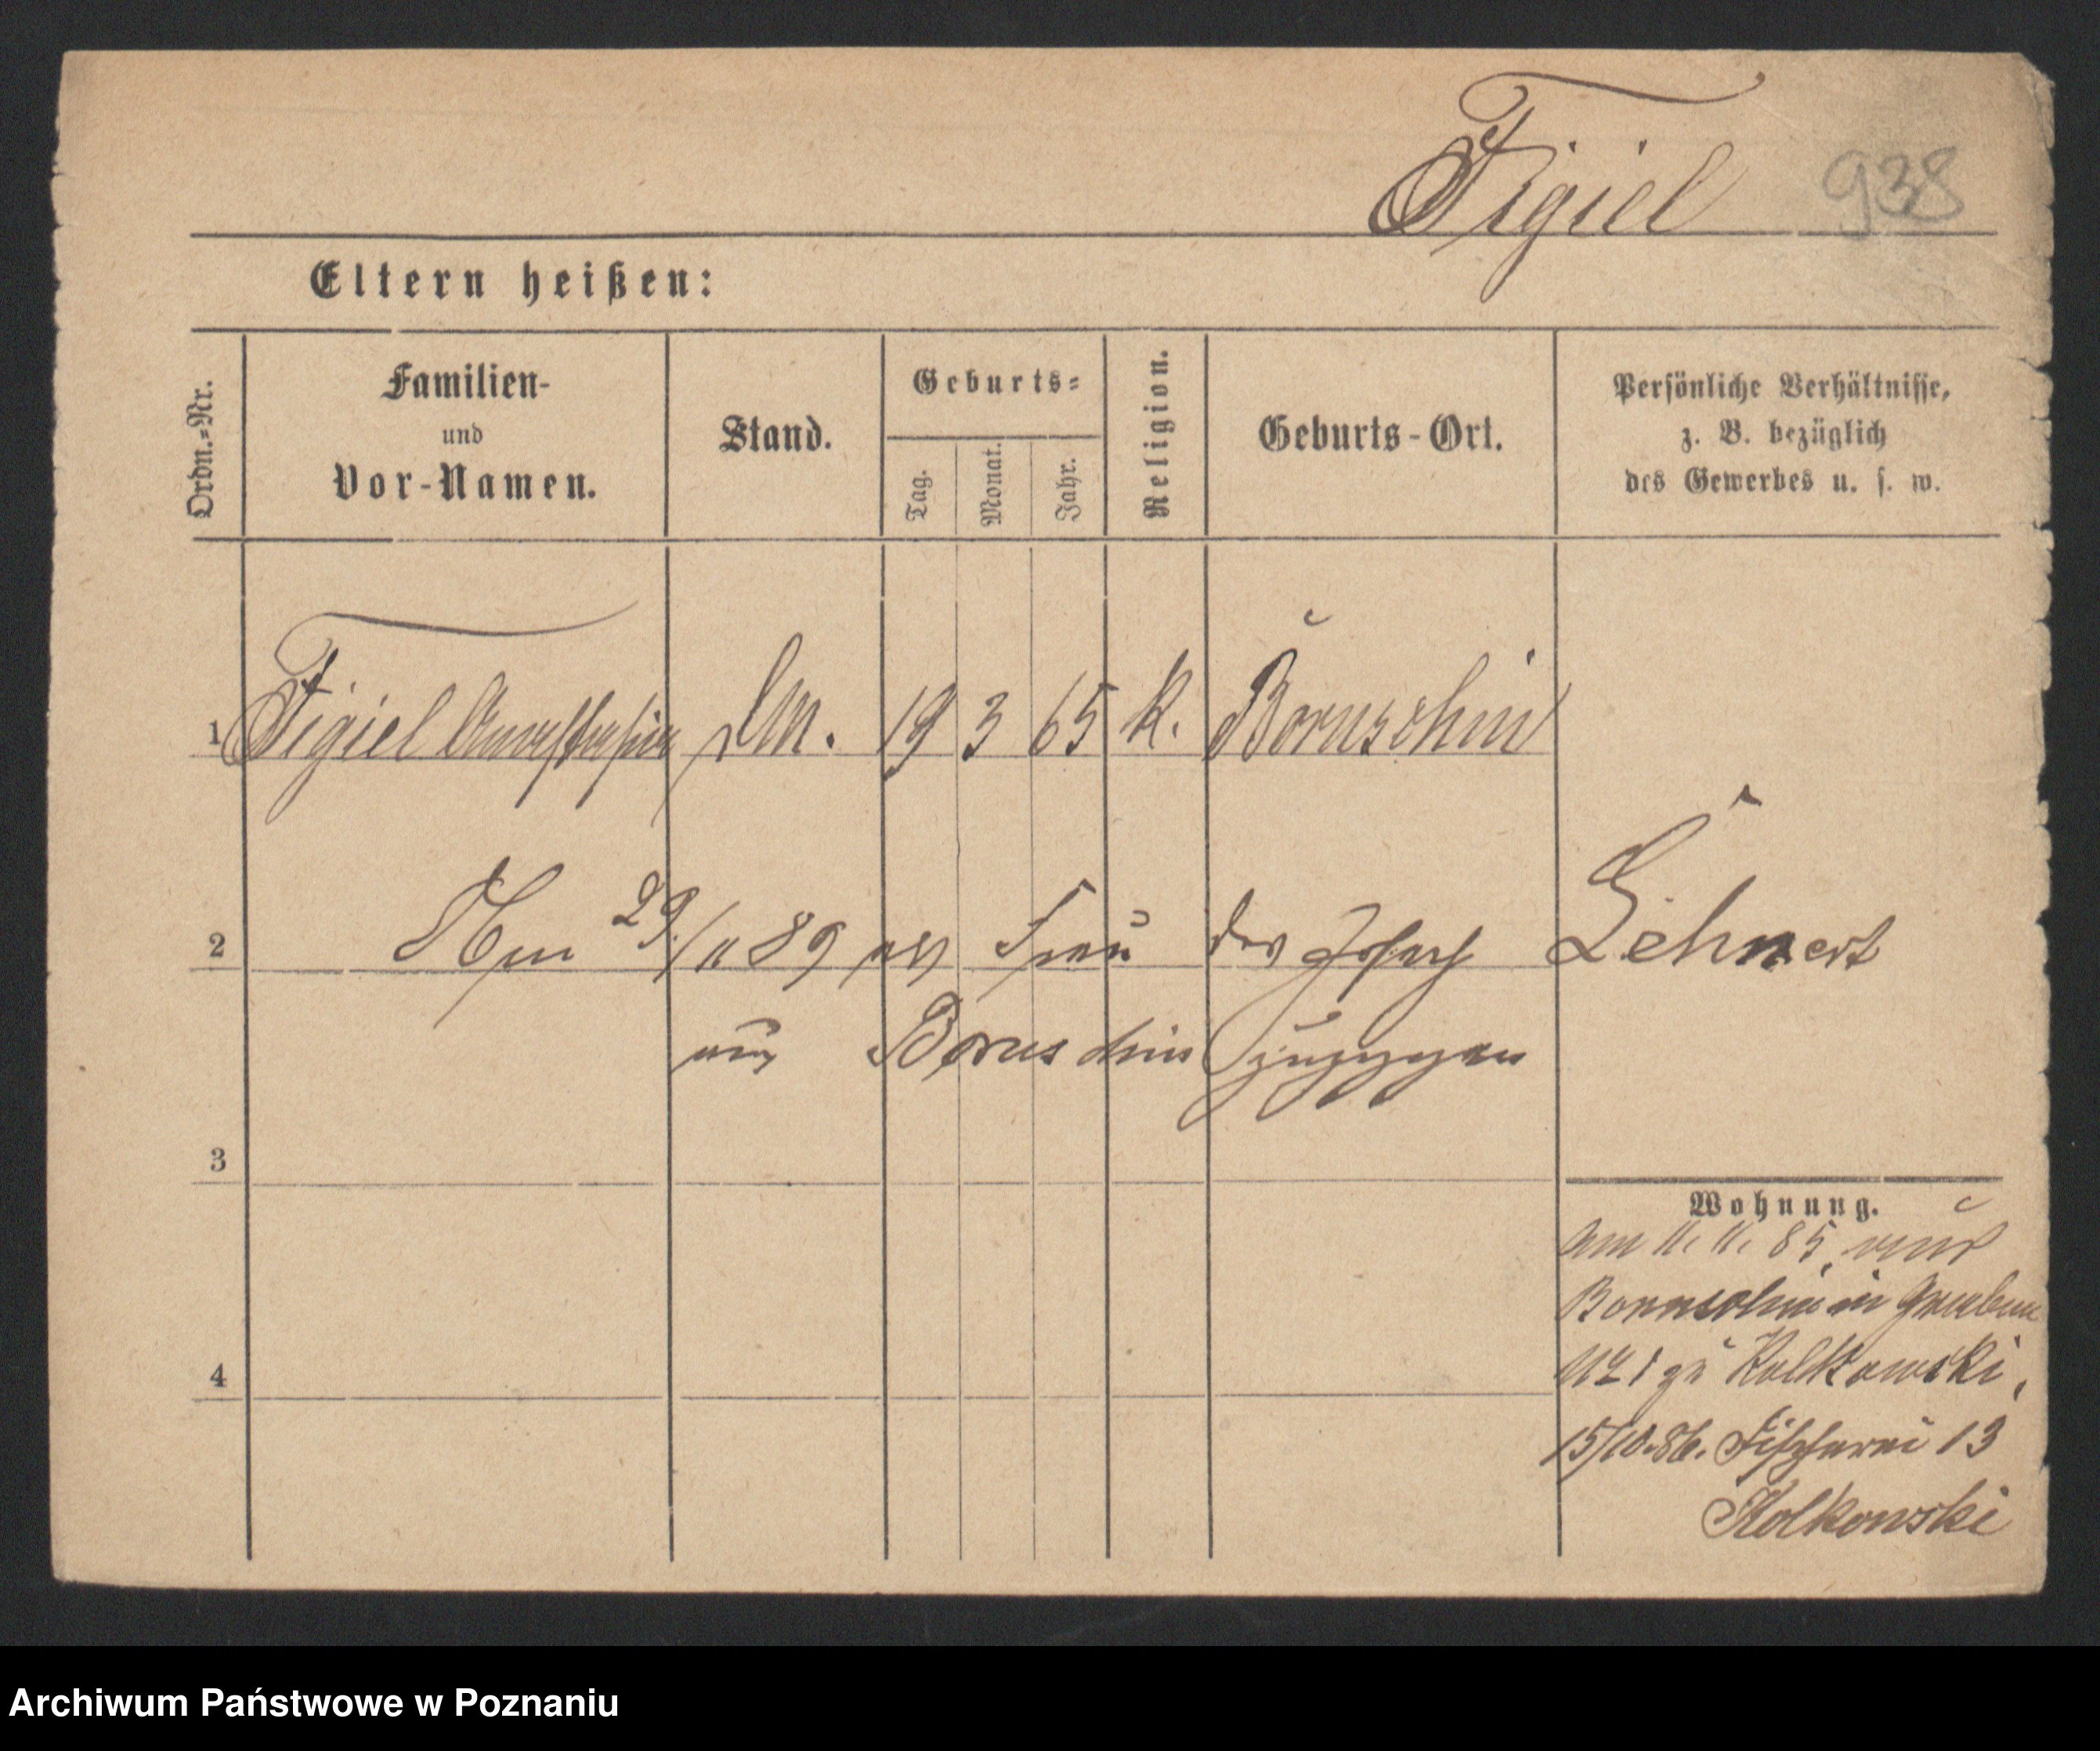 Figiel 938
Eltern heißen:
Ordn.=Nr.
Familien-
und
Vor-Namen.
Stand.
Geburts=
Tag.
Monat.
Jahr.
Religion.
Geburts-Ort.
Persönliche Verhältnisse,
z. B. bezüglich
des Gewerbes u. s. w.
1 Figiel Anastasia DM. 19 3 65 K. Boruschin
2 29./11 89 als Frau des Josef Lehnert
aus Boruschin zugezogen
3
4
Wohnung.
am 11. 11. 85 aus
Boruschin in Graben
No 1 zu Kolkowski,
15/10.86. Fischerei 13
Kolkowski
Archiwum Państwowe w Poznaniu